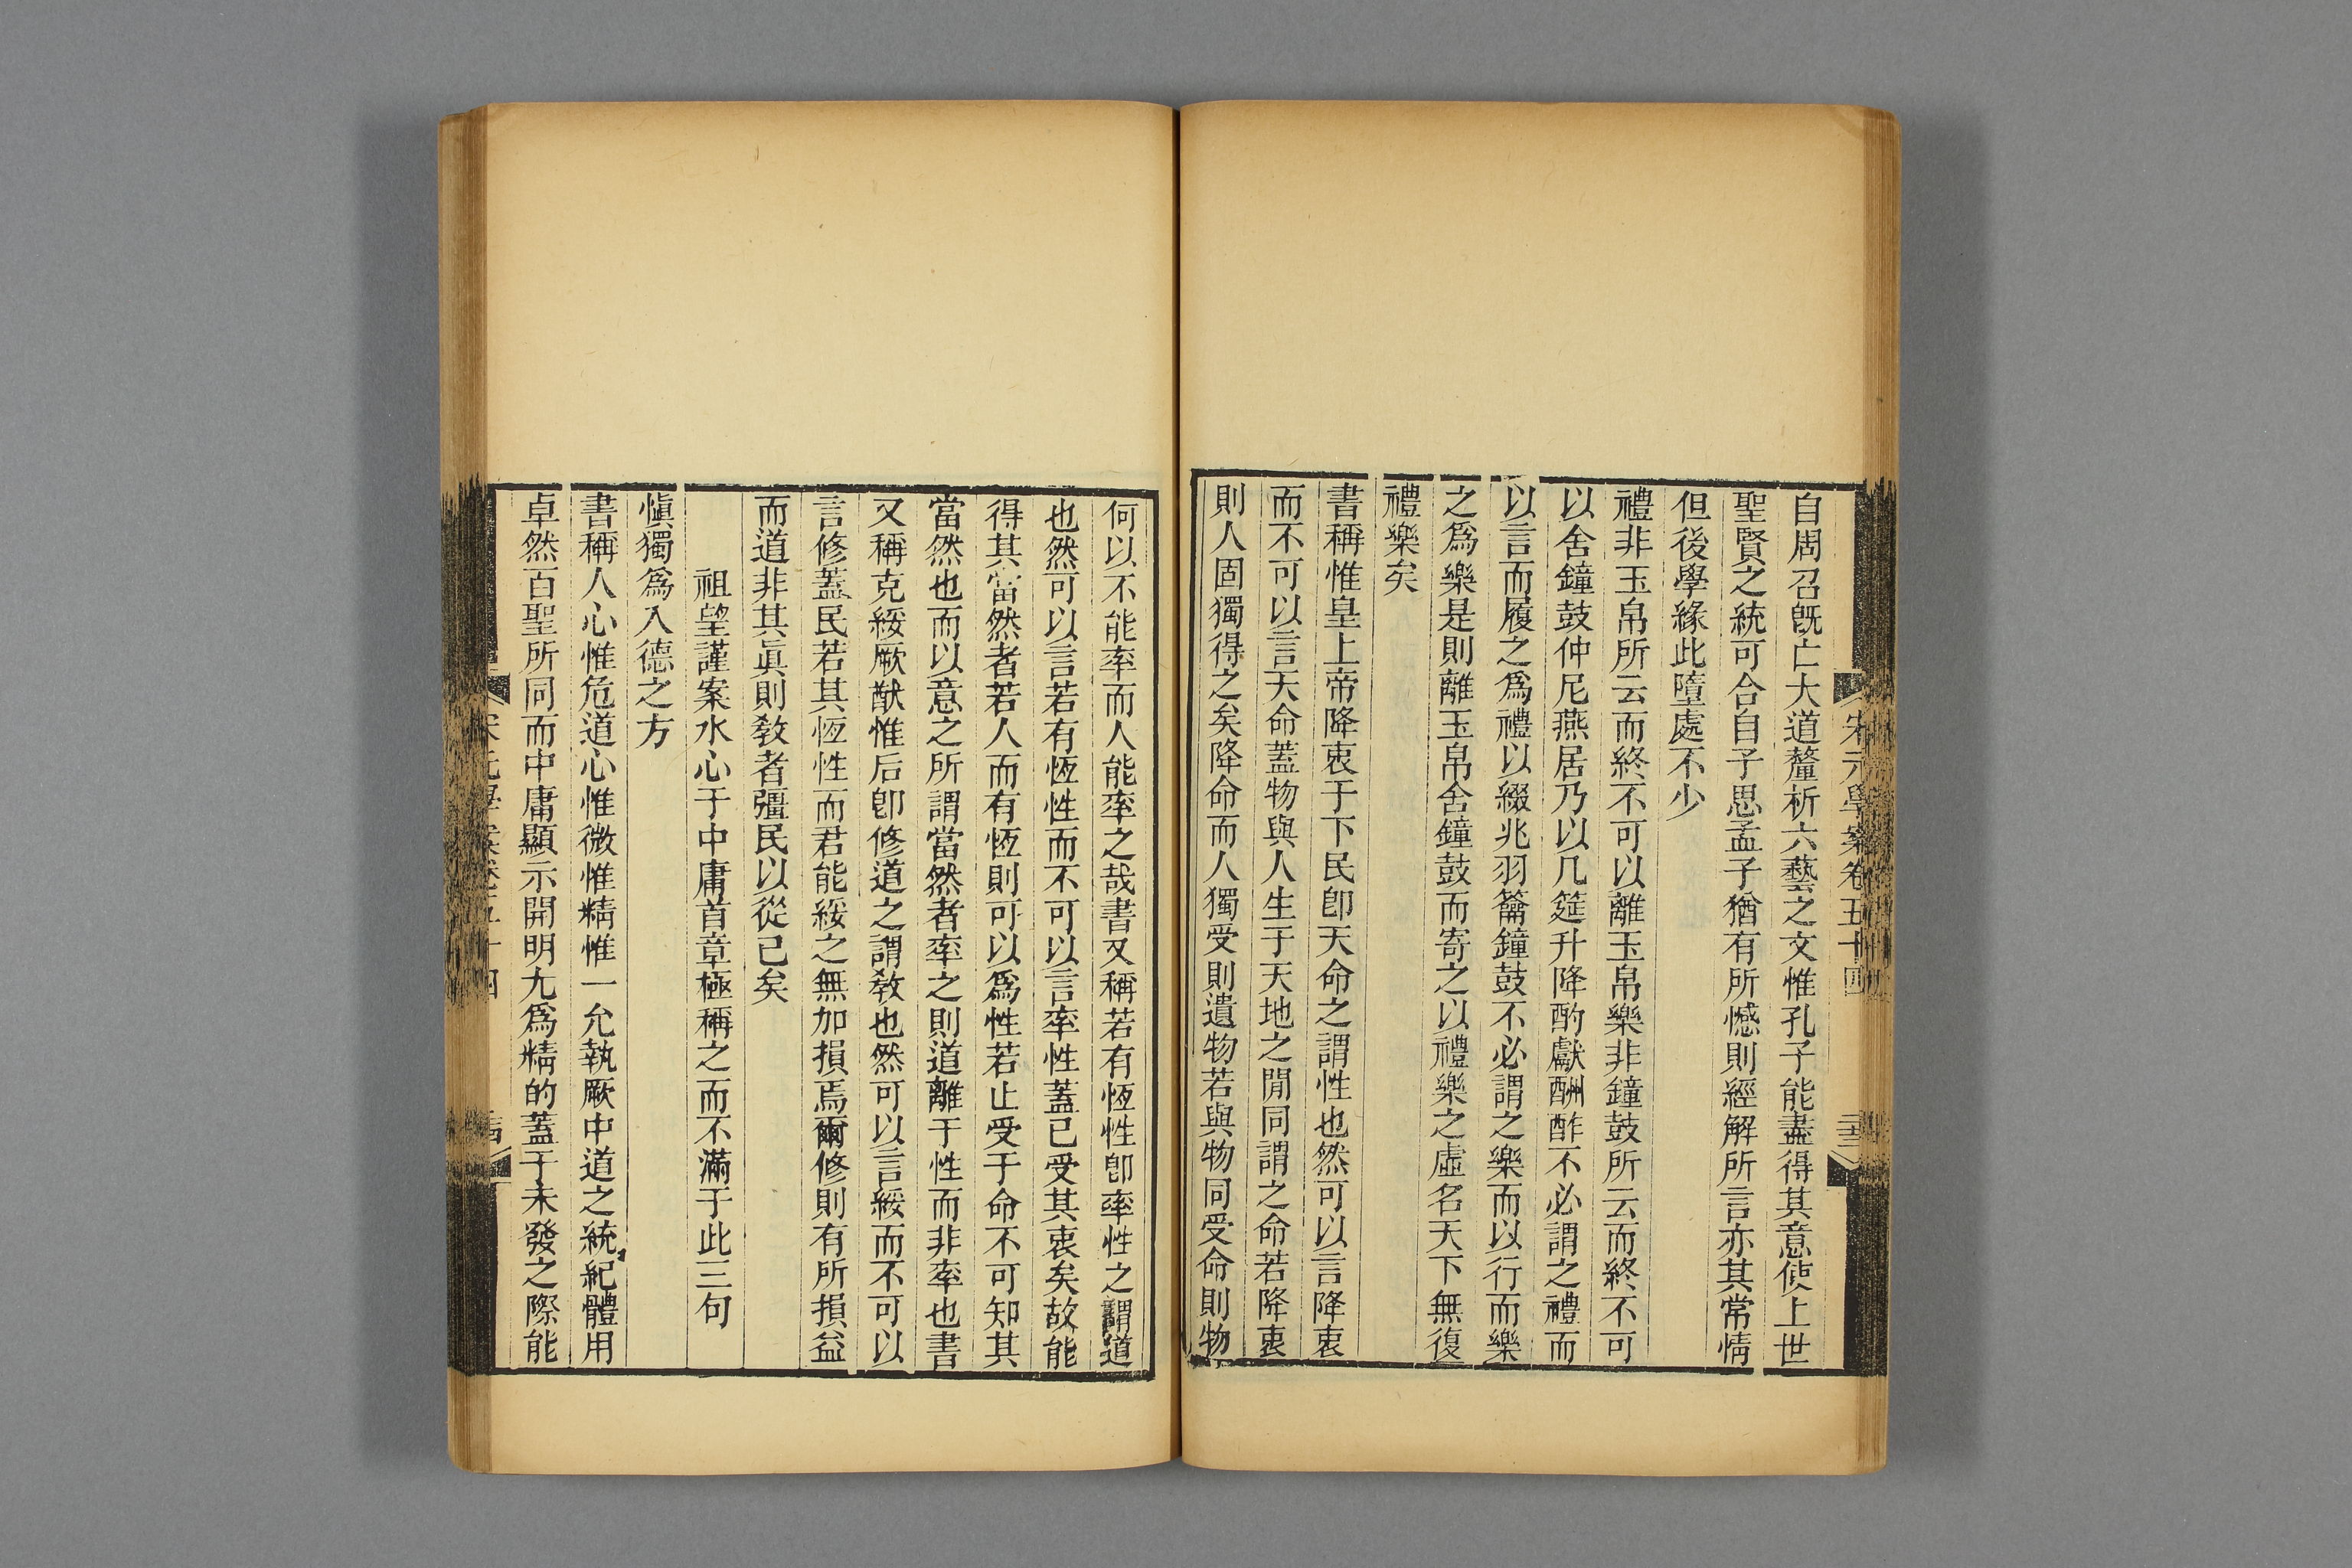 宋元學案卷五十四
自周召旣亡大道釐析六藝之文惟孔子能盡得其意使上世
聖賢之統可合自子思孟子猶有所憾則經解所言亦其常情
但後學緣此墮處不少
禮非玉帛所云而終不可以離玉帛樂非鐘鼓所云而終不可
以舍鐘鼓仲尼燕居乃以几筵升降酌獻酬酢不必謂之禮而
以言而履之爲禮以綴兆羽籥鐘鼓不必謂之樂而以行而樂
之爲樂是則離玉帛舍鐘鼓而寄之以禮樂之虛名天下無復
禮樂矣
書稱惟皇上帝降衷于下民卽天命之謂性也然可以言降衷
而不可以言天命蓋物與人生于天地之閒同謂之命若降衷
則人固獨得之矣降命而人獨受則遺物若與物同受命則物
何以不能率而人能率之哉書又稱若有恆性卽率性之謂道
也然可以言若有恆性而不可以言率性蓋已受其衷矣故能
得其當然者若人而有恆則可以爲性若止受于命不可知其
當然也而以意之所謂當然者率之則道離于性而非率也書
又稱克綏厥猷惟后卽修道之謂敎也然可以言綏而不可以
言修蓋民若其恆性而君能綏之無加損焉爾修則有所損益
而道非其眞則敎者彊民以從已矣
祖望謹案水心于中庸首章極稱之而不滿于此三句
愼獨爲入德之方
書稱人心惟危道心惟微惟精惟一允執厥中道之統紀體用
卓然百聖所同而中庸顯示開明尤爲精的蓋于未發之際能
宋元學案卷五十四